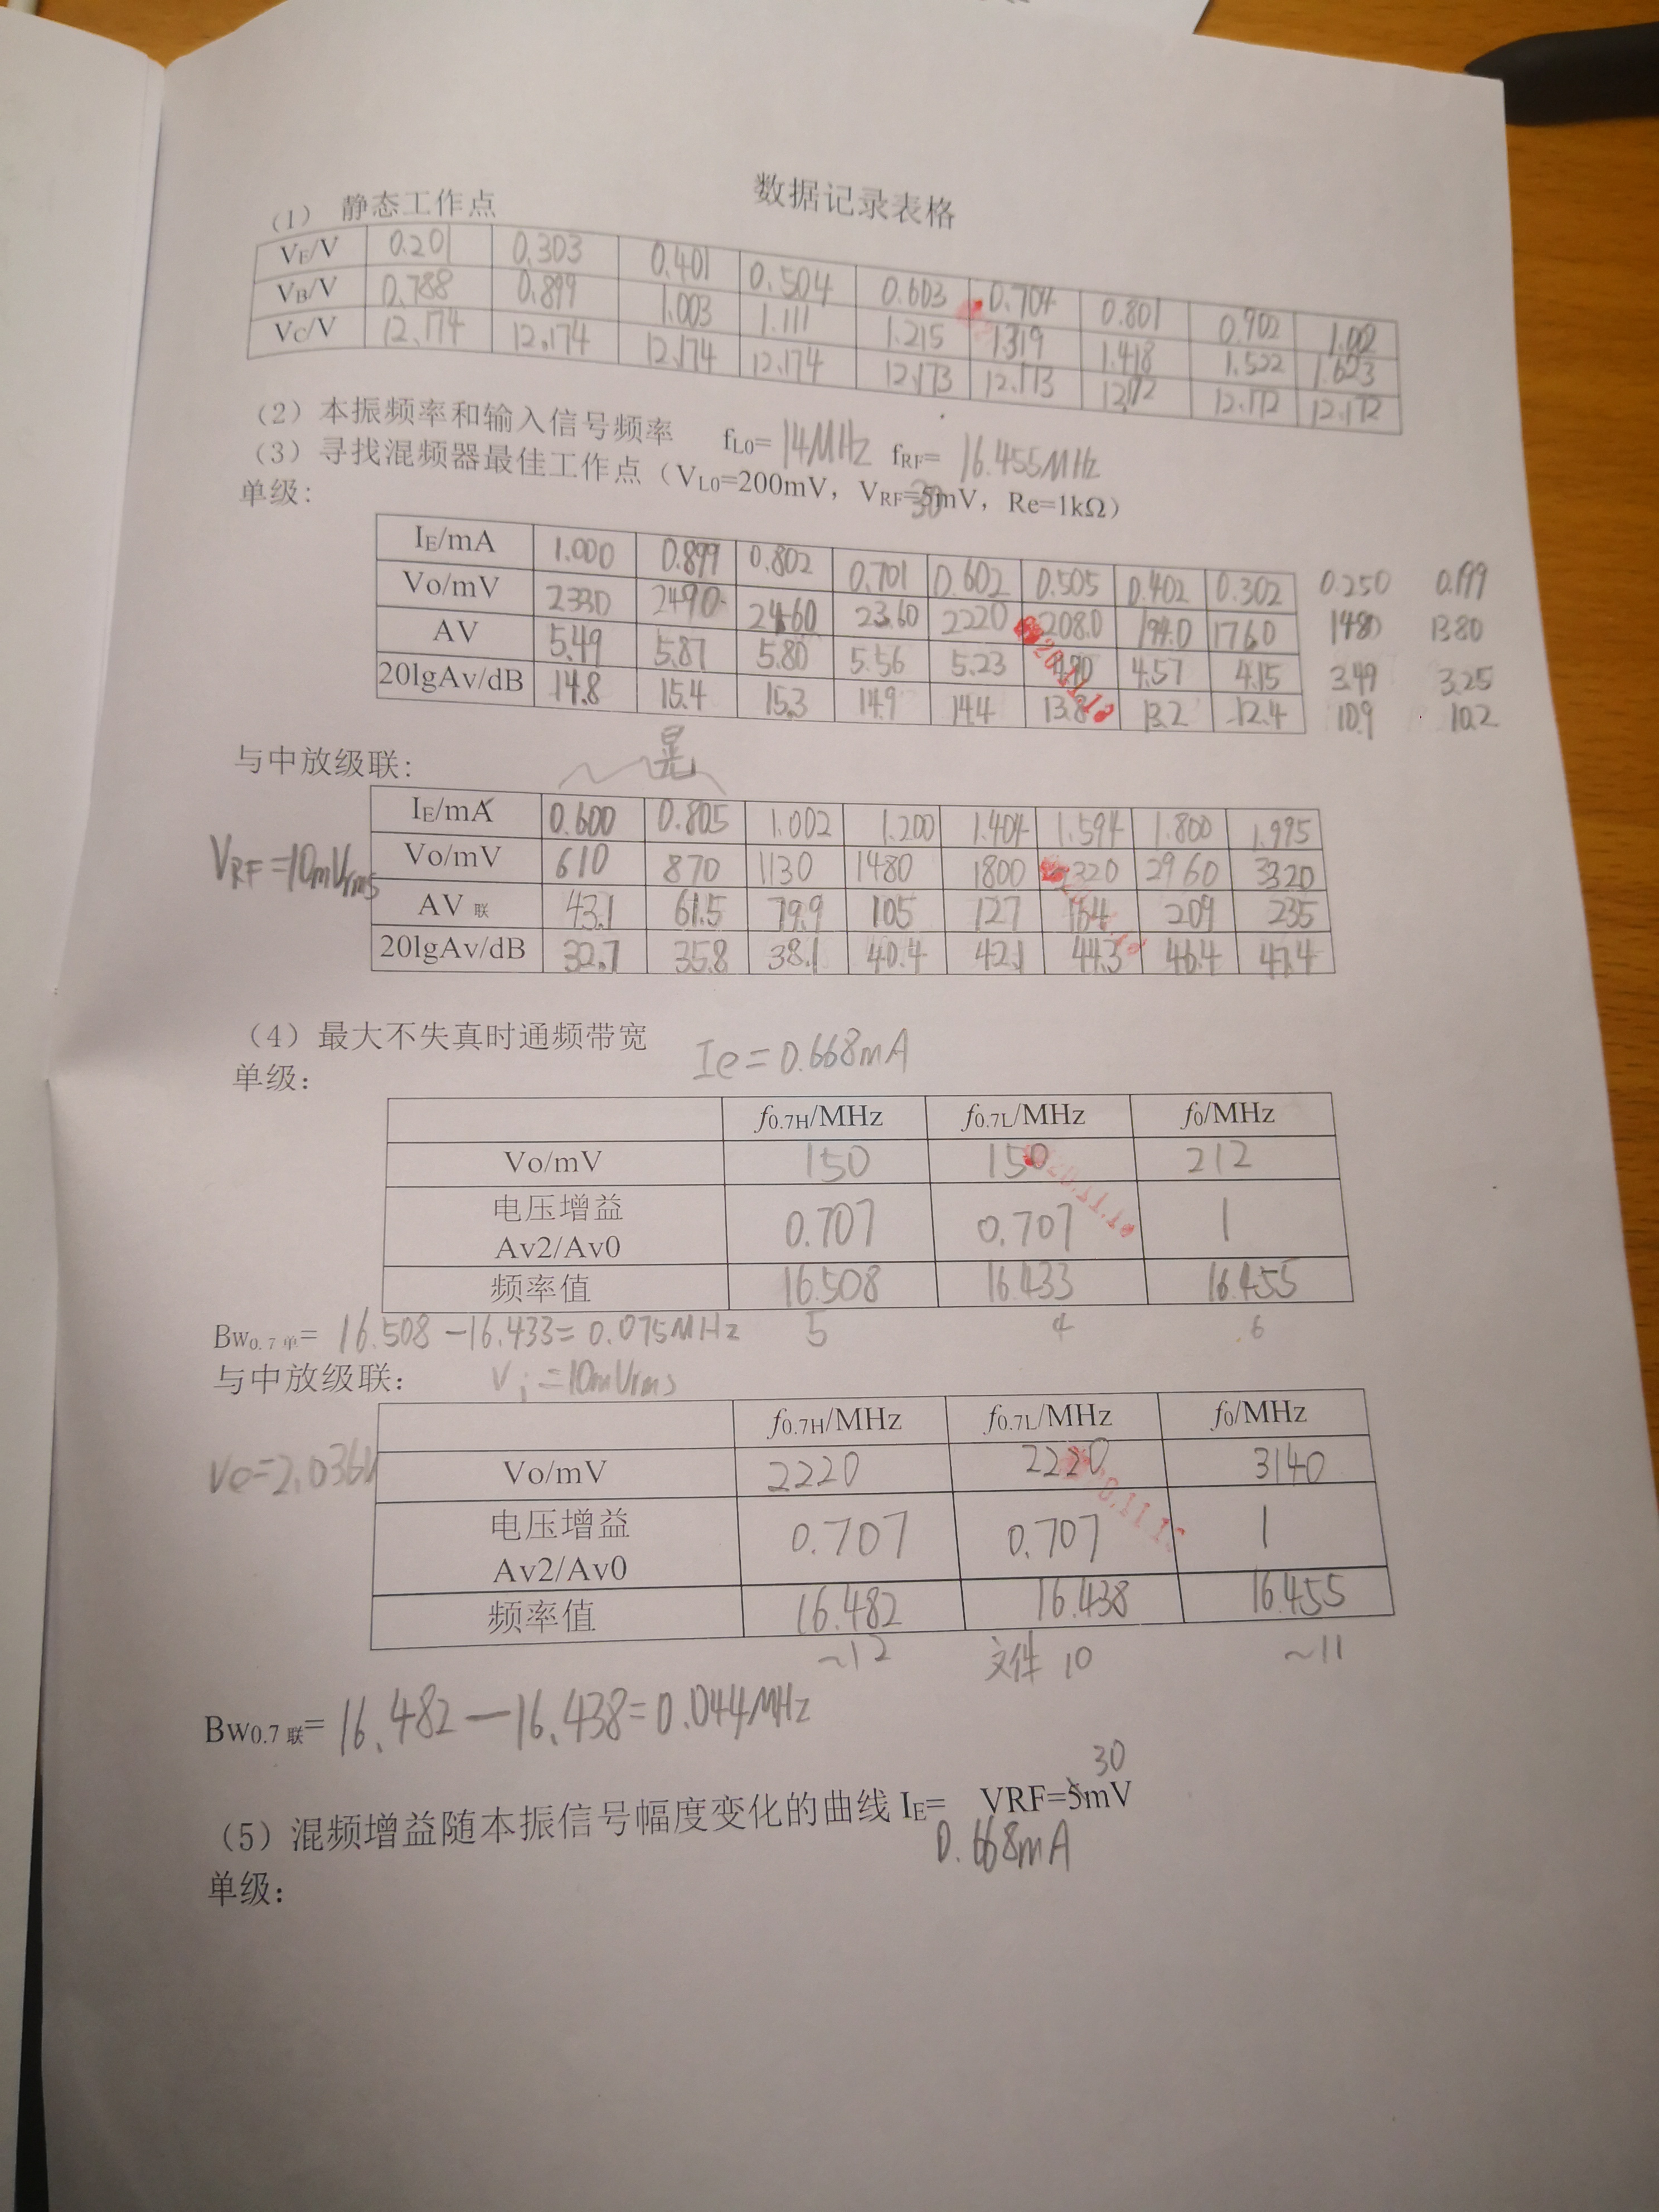 数据记录表格
(1) 静态工作点
VE/V 0.201 0.303 0.401 0.504 0.603 0.704 0.801 0.902 1.002
VB/V 0.788 0.899 1.003 1.111 1.215 1.319 1.418 1.522 1.623
VC/V 12.174 12.174 12.174 12.174 12.173 12.173 12.172 12.172 12.172
(2) 本振频率和输入信号频率 fL0= 14MHz fRF= 16.455MHz
(3) 寻找混频器最佳工作点(VL0=200mV, VRF=30mV, Re=1kΩ)
单级:
IE/mA 1.000 0.899 0.802 0.701 0.602 0.505 0.402 0.302 0.250 0.199
Vo/mV 233.0 249.0 246.0 236.0 222.0 208.0 194.0 176.0 148.0 138.0
AV 5.49 5.87 5.80 5.56 5.23 4.90 4.57 4.15 3.49 3.25
20lgAv/dB 14.8 15.4 15.3 14.9 14.4 13.8 13.2 12.4 10.9 10.2
与中放级联: 晃
IE/mA 0.600 0.805 1.002 1.200 1.404 1.594 1.800 1.995
VRF=10mVrms
Vo/mV 610 870 1130 1480 1800 2320 2960 3320
AV联 43.1 61.5 79.9 105 127 164 209 235
20lgAv/dB 32.7 35.8 38.1 40.4 42.1 44.3 46.4 47.4
(4) 最大不失真时通频带宽 Ie=0.668mA
单级:
f0.7H/MHz f0.7L/MHz f0/MHz
Vo/mV 150 150 212
电压增益 Av2/Av0 0.707 0.707 1
频率值 16.508 16.433 16.455
5 4 6
Bw0.7单= 16.508-16.433=0.075MHz
与中放级联: Vi=10mVrms
f0.7H/MHz f0.7L/MHz f0/MHz
Ve=2.036V
Vo/mV 2220 2220 3140
电压增益 Av2/Av0 0.707 0.707 1
频率值 16.482 16.438 16.455
~12 文件10 ~11
Bw0.7联= 16.482-16.438=0.044MHz
(5) 混频增益随本振信号幅度变化的曲线 IE= 0.668mA VRF=5mV 30
单级: